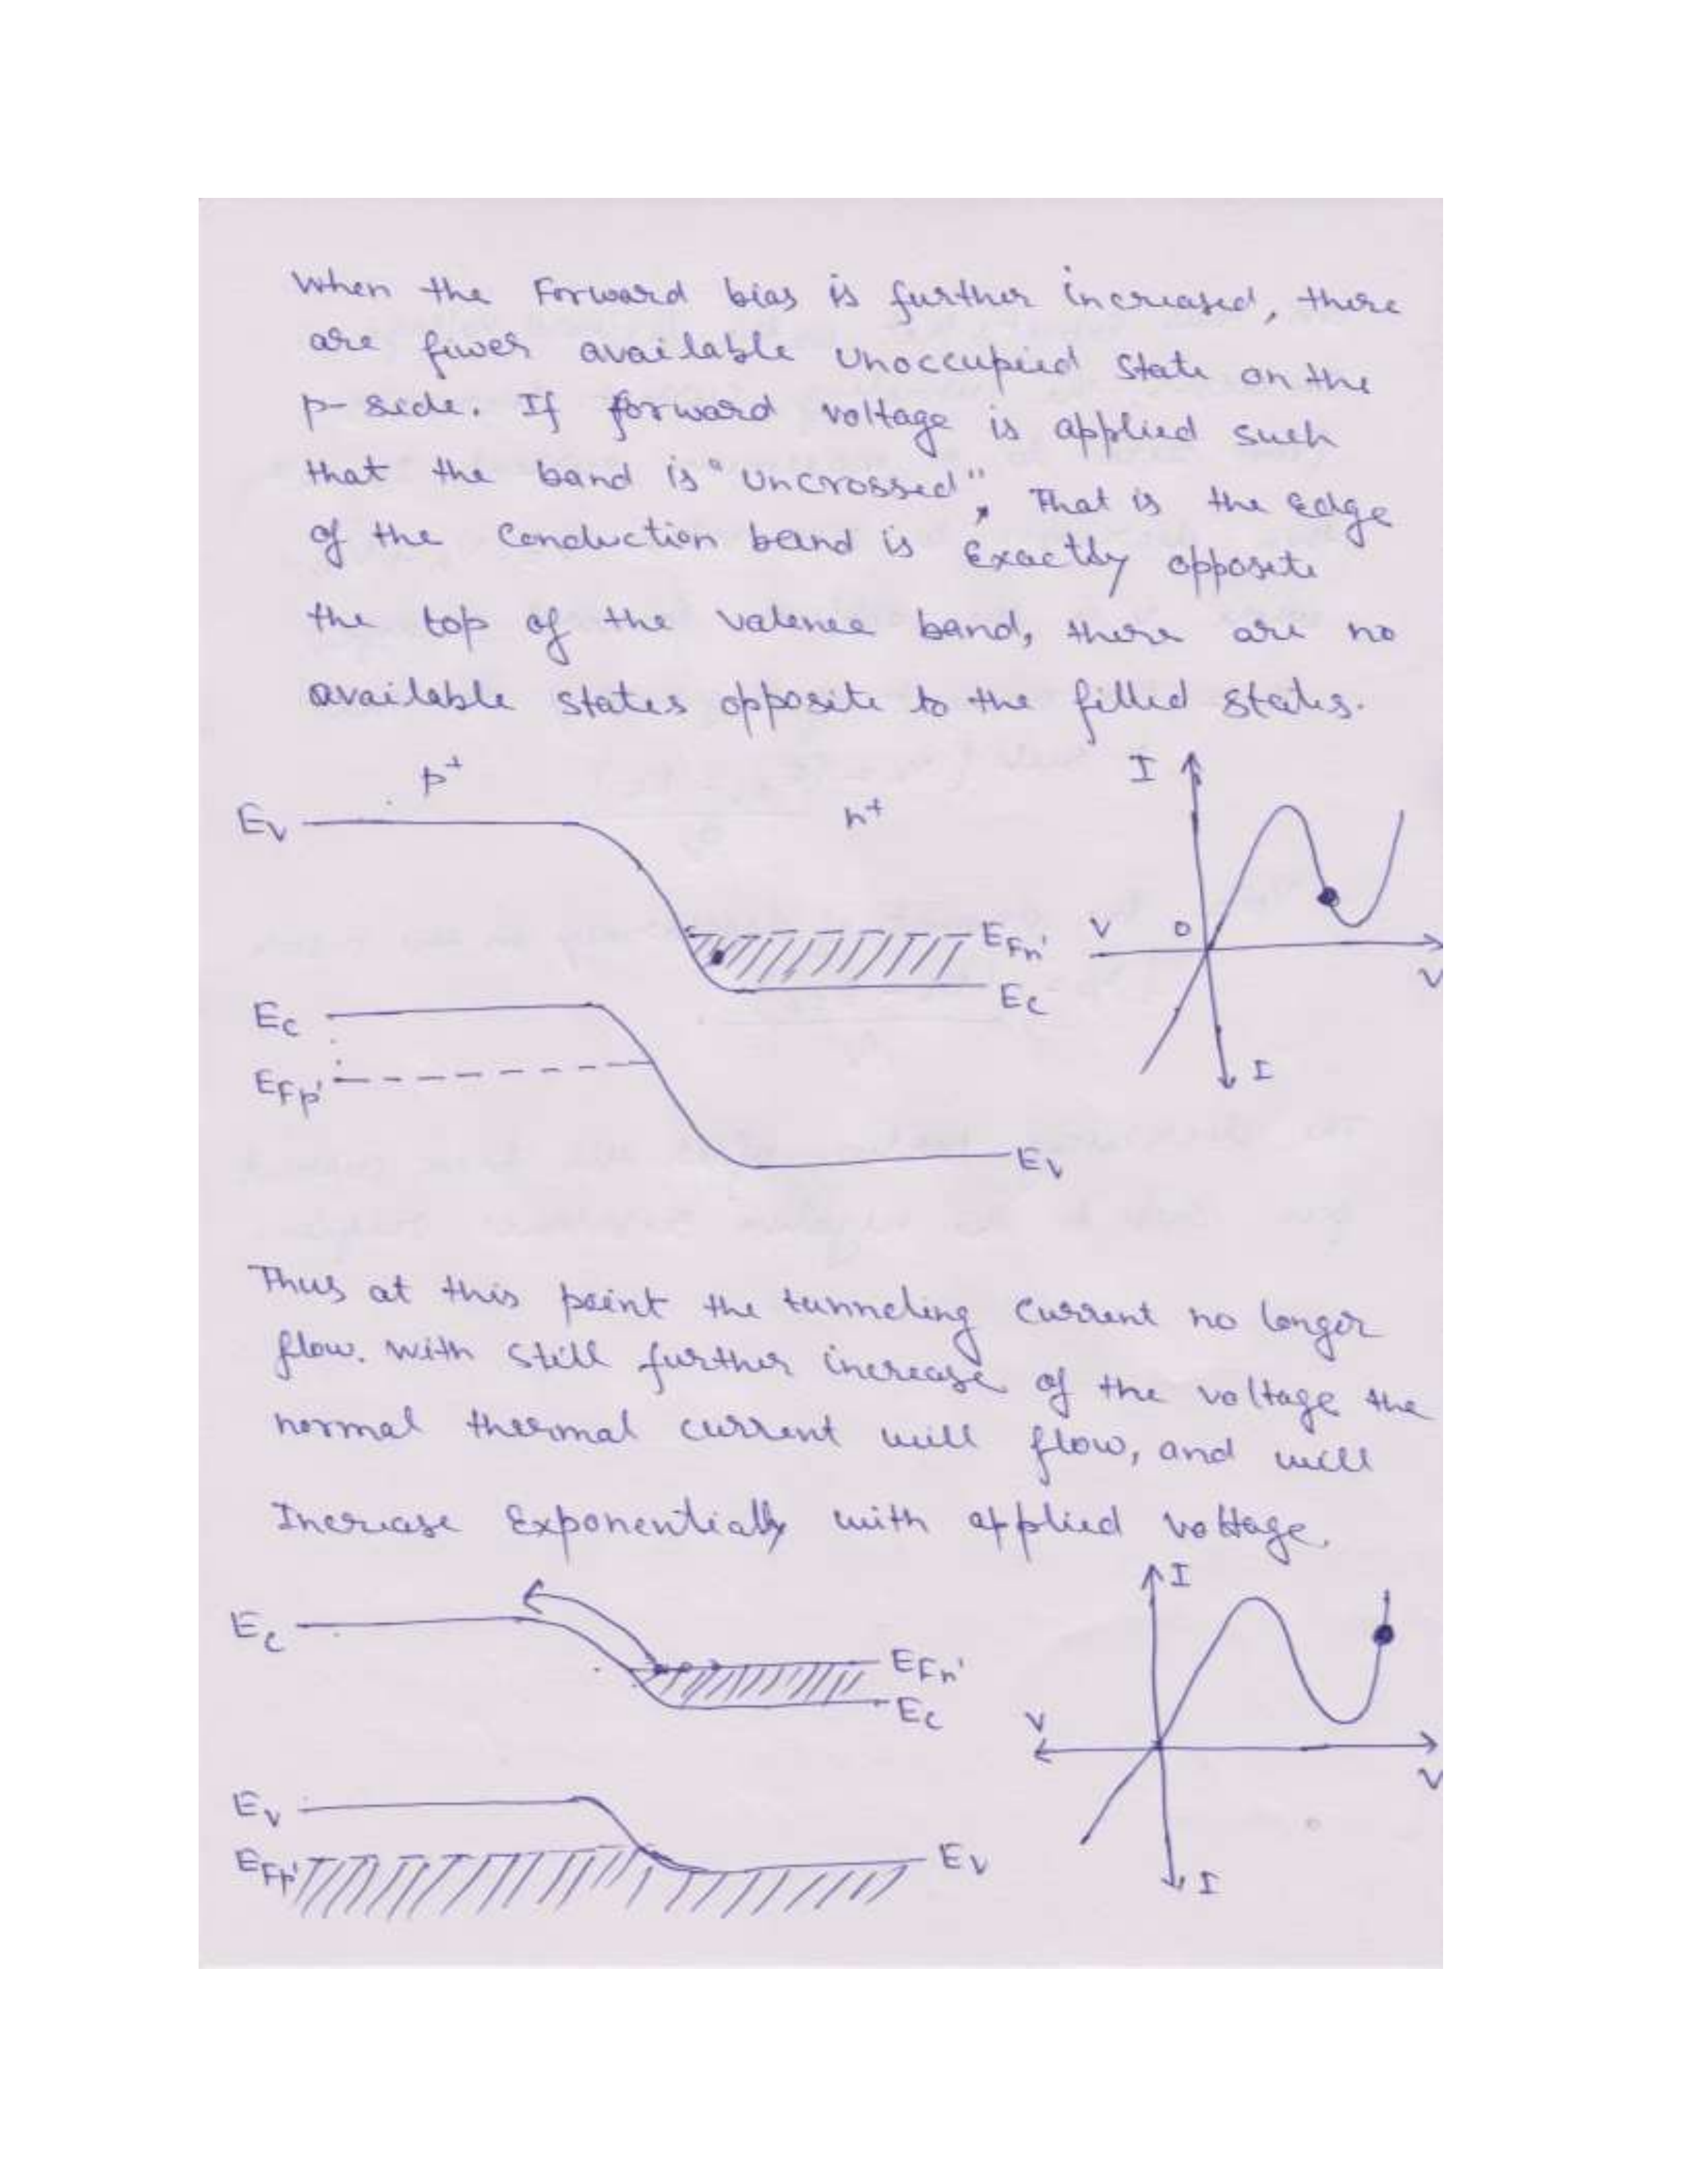 When the Forward bias is further increased, there
are fewer available unoccupied state on the
p-side. If forward voltage is applied such
that the band is "uncrossed", That is the edge
of the Conduction band is Exactly opposite
the top of the valence band, there are no
available states opposite to the filled states.
p+
n+
I
Ev
EFn'
V
O
V
Ec
Ec
EFp'
I
Ev
Thus at this point the tunneling current no longer
flow. with still further increase of the voltage the
normal thermal current will flow, and will
Increase Exponentially with applied voltage.
I
Ec
EFn'
Ec
V
V
Ev
EFp'
Ev
I